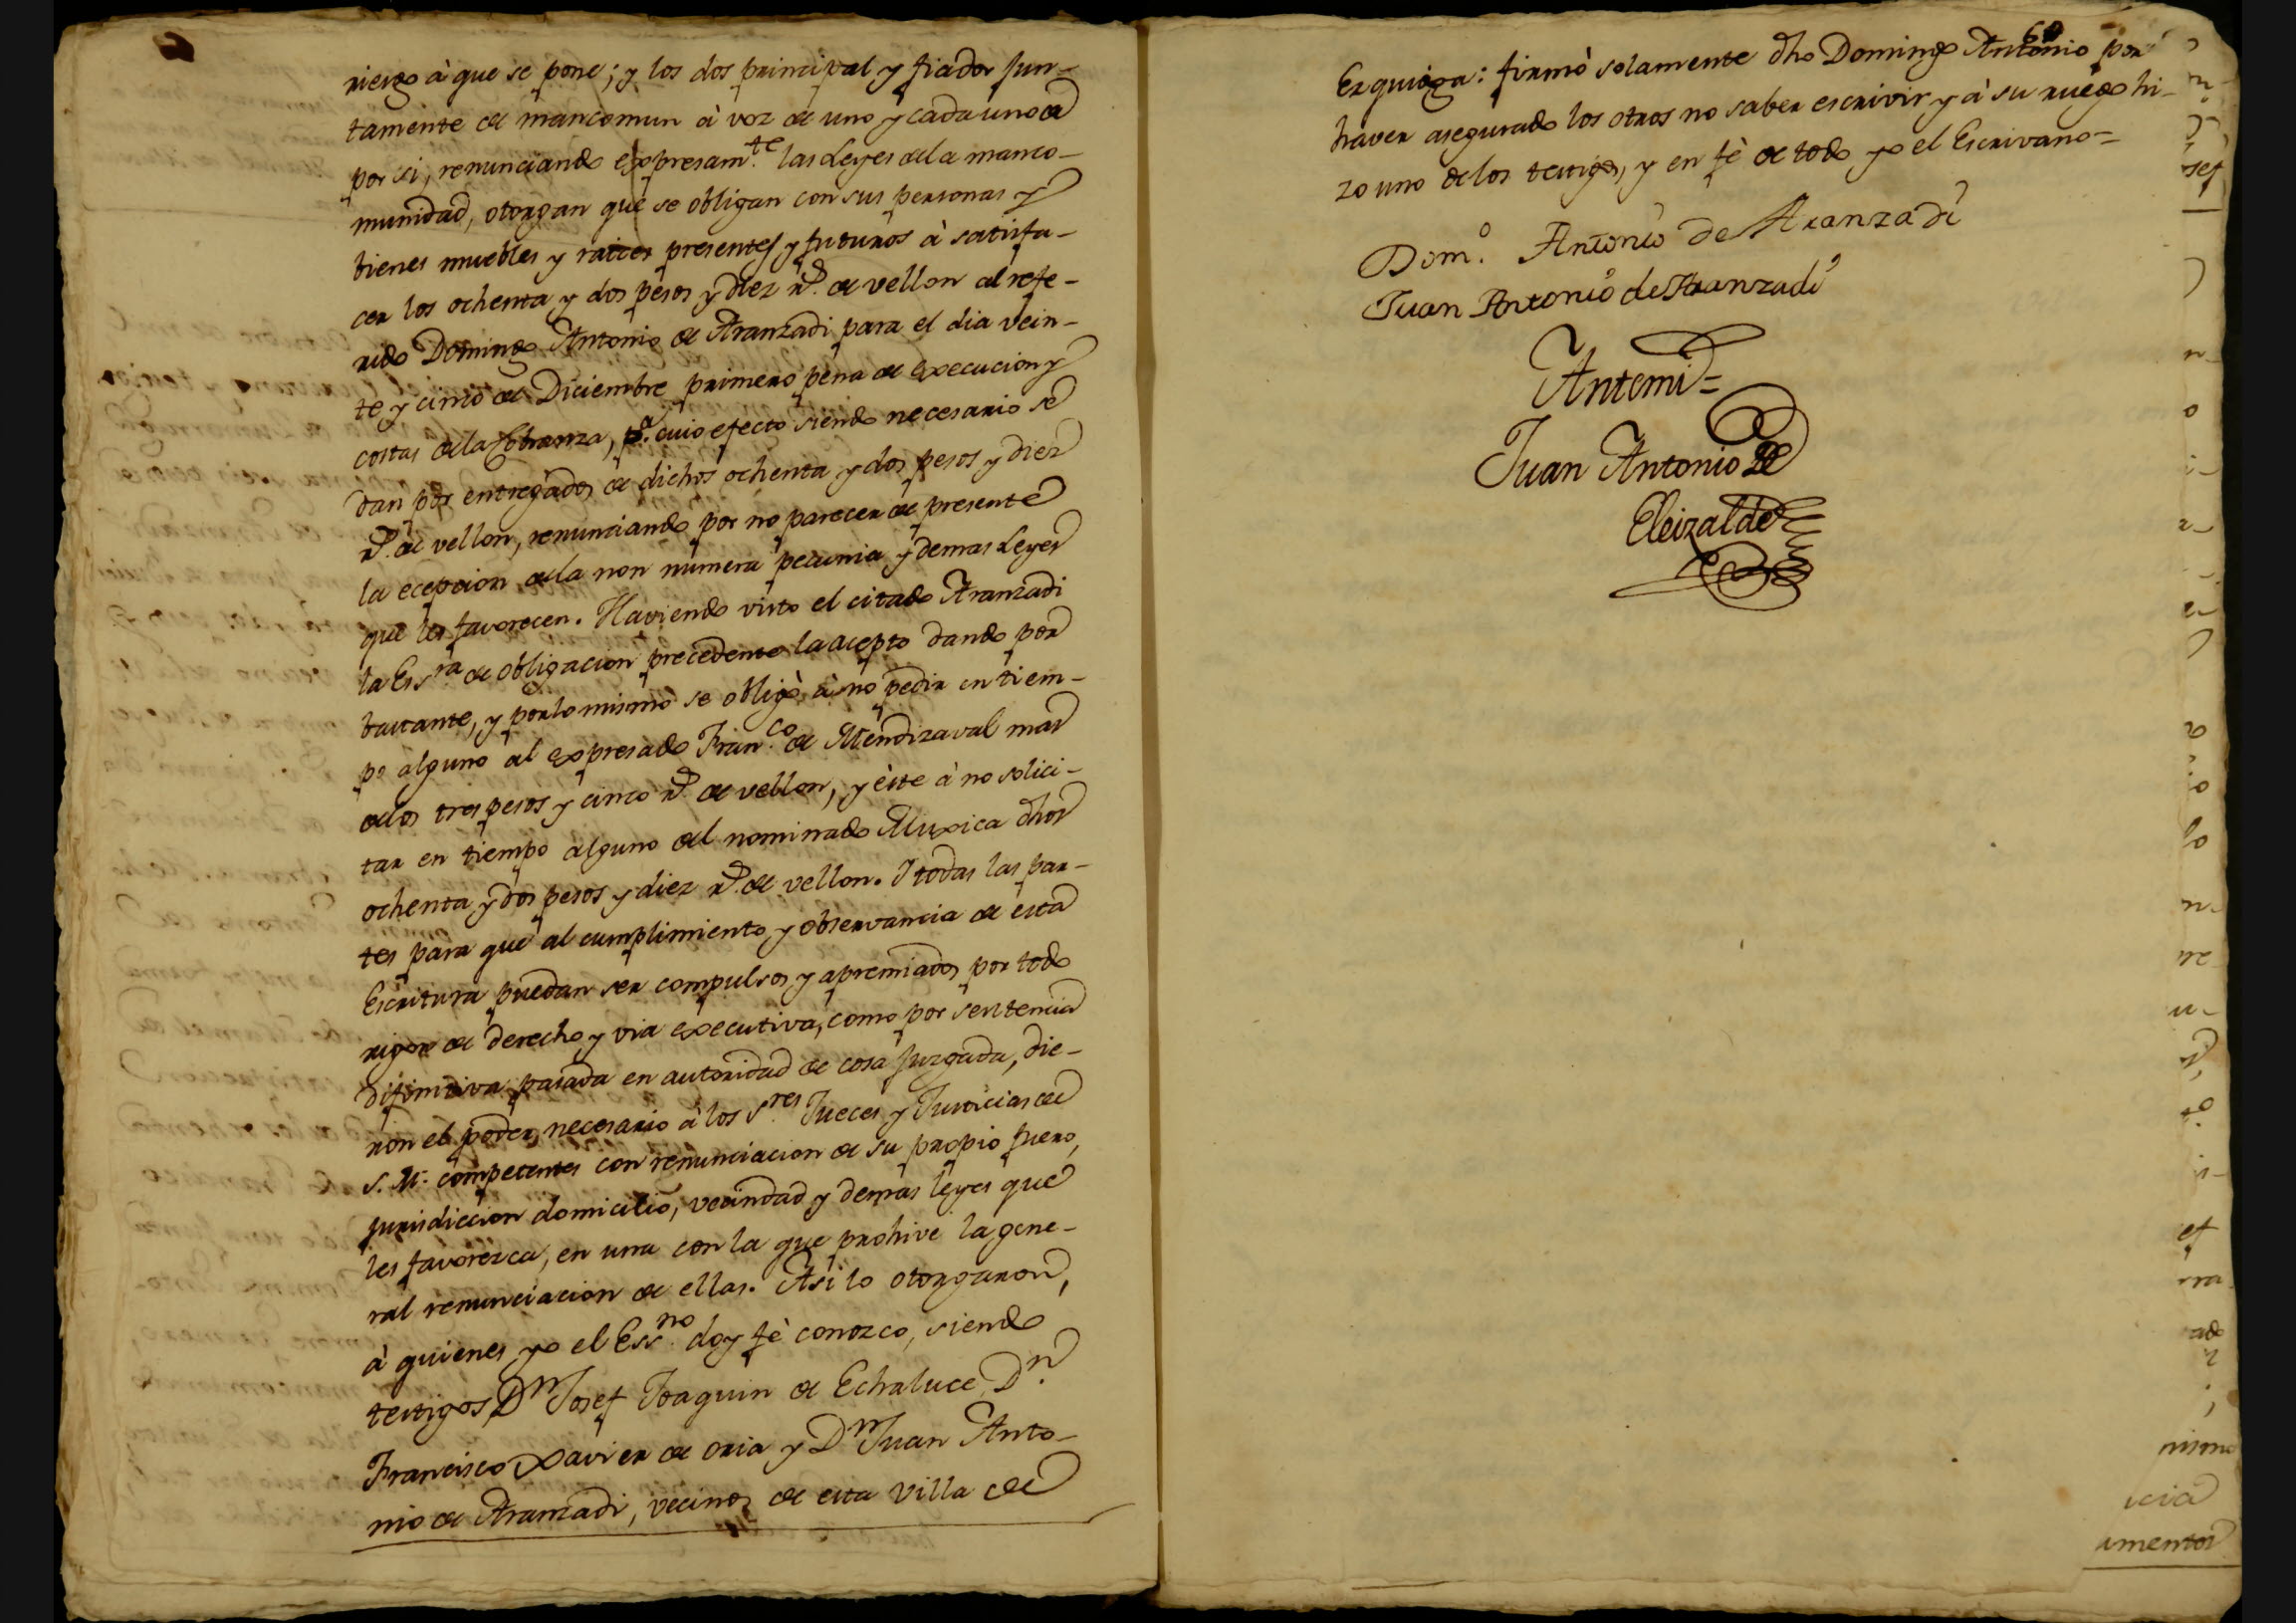 riesgo à que se pone; y los dos principal y fiador jun-
tamente de mancomun à voz de uno y cada uno de
por si, renunciando expresam.te las Leyes dela manco-
munidad, otorgan que se obligan con sus personas y
bienes muebles y raices presentes y futuros à satisfa-
cer los ochenta y dos pesos y diez r.s de vellon al refe-
rido Domingo Antonio de Aranzadi para el dia vein-
te y cinco de Diciembre primero pena de execucion y
costas dela Cobranza, p.a cuio efecto siendo necesario se
dan por entregados de dichos ochenta y dos pesos y diez
r.s de vellon, renunciando por no parecer de presente
la ecepcion dela non numera pecunia y demas Leyes
que les favorecen. Haviendo visto el citado Aranzadi
la Ess.ra de obligacion precedente la acepto dando por
bastante, y por lo mismo se obligò à no pedir en tiem-
po alguno al expresado Fran.co de Mendizaval mas
delos tres pesos y cinco r.s de vellon, y èste à no solici-
tar en tiempo alguno del nominado Muxica dhos
ochenta y dos pesos y diez r.s de vellon. I todas las par-
tes para que al cumplimiento y observancia de esta
Escritura puedan ser compulsos y apremiados por todo
rigor de derecho y via executiva, como por sentencia
difinitiva pasada en autoridad de cosa juzgada, die-
ron el poder necesario à los S.res Jueces y Justicias de
S. M. competentes con renunciacion de su propio fuero,
jurisdiccion domicilio, vecindad y demas leyes que
les favorezca, en una con la que prohive la gene-
ral renunciacion de ellas. Asi lo otorgaron,
à quienes yo el Ess.no doy fè conozco, siendo
testigos D.n Josef Joaquin de Echaluce, D.n
Francisco Xavier de Oria y D.n Juan Anto-
nio de Aranzadi, vecinos de esta Villa de
60
Ezquioga: firmò solamente dho Domingo Antonio por
haver asegurado los otros no saber escrivir y à su ruego hi-
zo uno delos testigos, y en fè de todo yo el Escrivano=
Dom.o Antonio de Aranzadi
Juan Antonio de Aranzadi
Antemi=
Juan Antonio de
Eleizalde